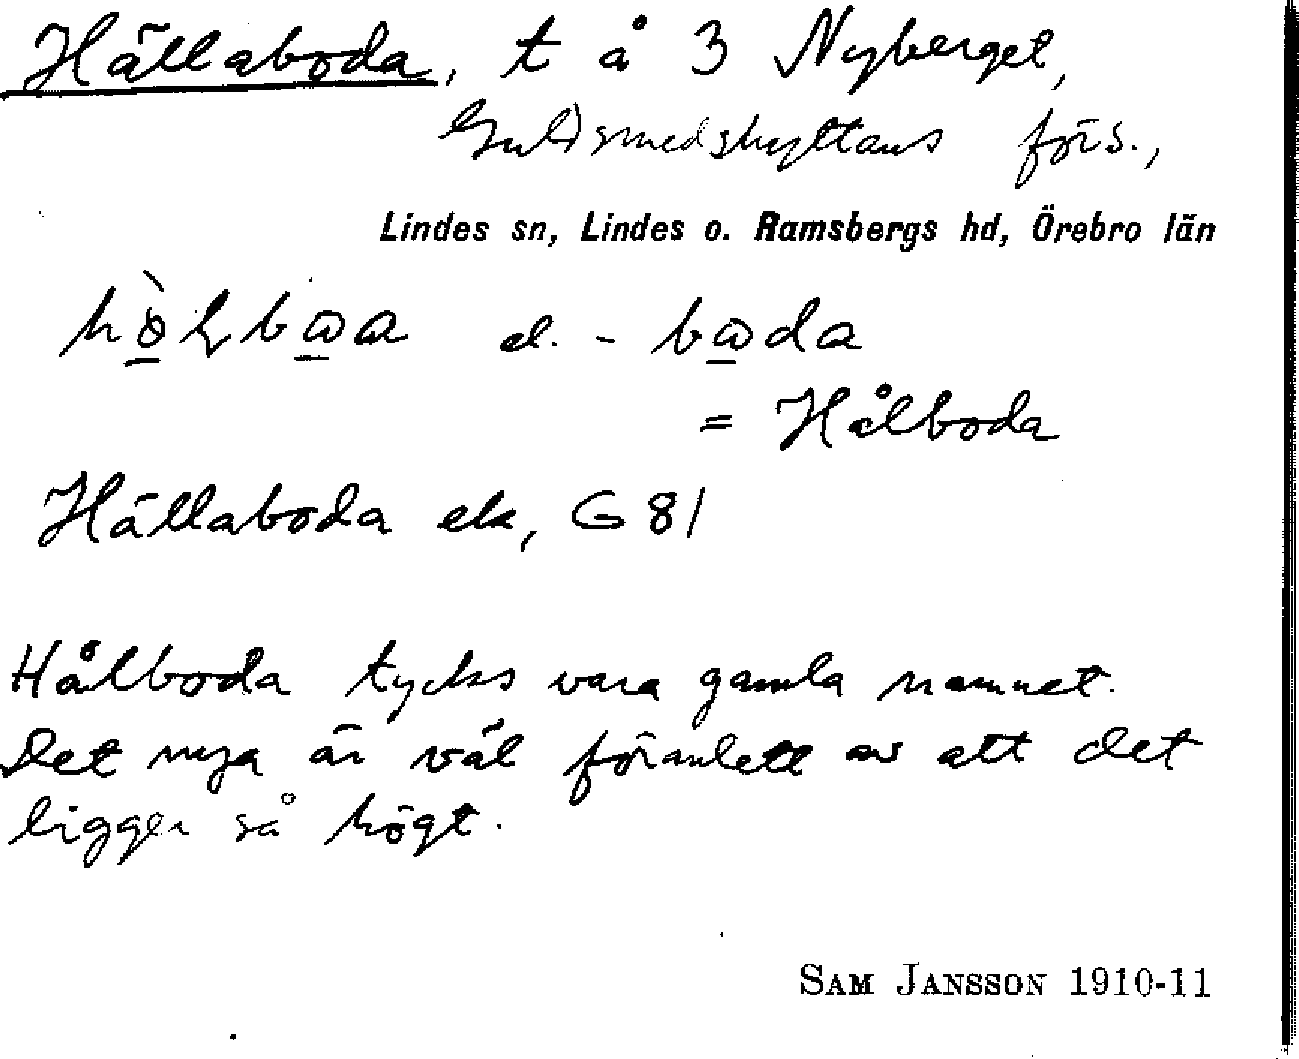 Hällaboda, t å 3 Nyberget,
Guldsmedshyttans förs.,
Lindes sn, Lindes o. Ramsbergs hd, Örebro län
el. -
= Hålboda
Hällaboda ek, G 81
Hålboda tycks vara gamla namnet.
Det nya är väl föranlett av att det
ligger så högt.
SAM JANSSON 1910-11